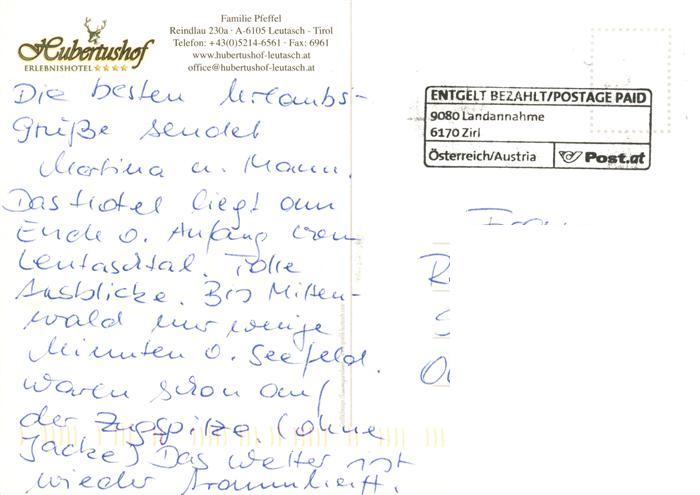 Hubertushof
ERLEBNISHOTEL
Familie Pfeffel
Reindlau 230a · A-6105 Leutasch - Tirol
Telefon: +43(0)5214-6561 · Fax: 6961
www.hubertushof-leutasch.at
office@hubertushof-leutasch.at
Die besten Urlaubs-
grüße sendet
Martina u. Mann.
Das Hotel liegt am
Ende o. Anfang vom
Leutaschtal. Tolle
Ausblicke. Bis Mitten-
wald nur wenige
Minuten o. Seefeld.
Waren schon auf
der Zugspitze (ohne
Jacke) Das Wetter ist
wieder traumhaft.
ENTGELT BEZAHLT/POSTAGE PAID
9080 Landannahme
6170 Zirl
Österreich/Austria Post.at
Frau